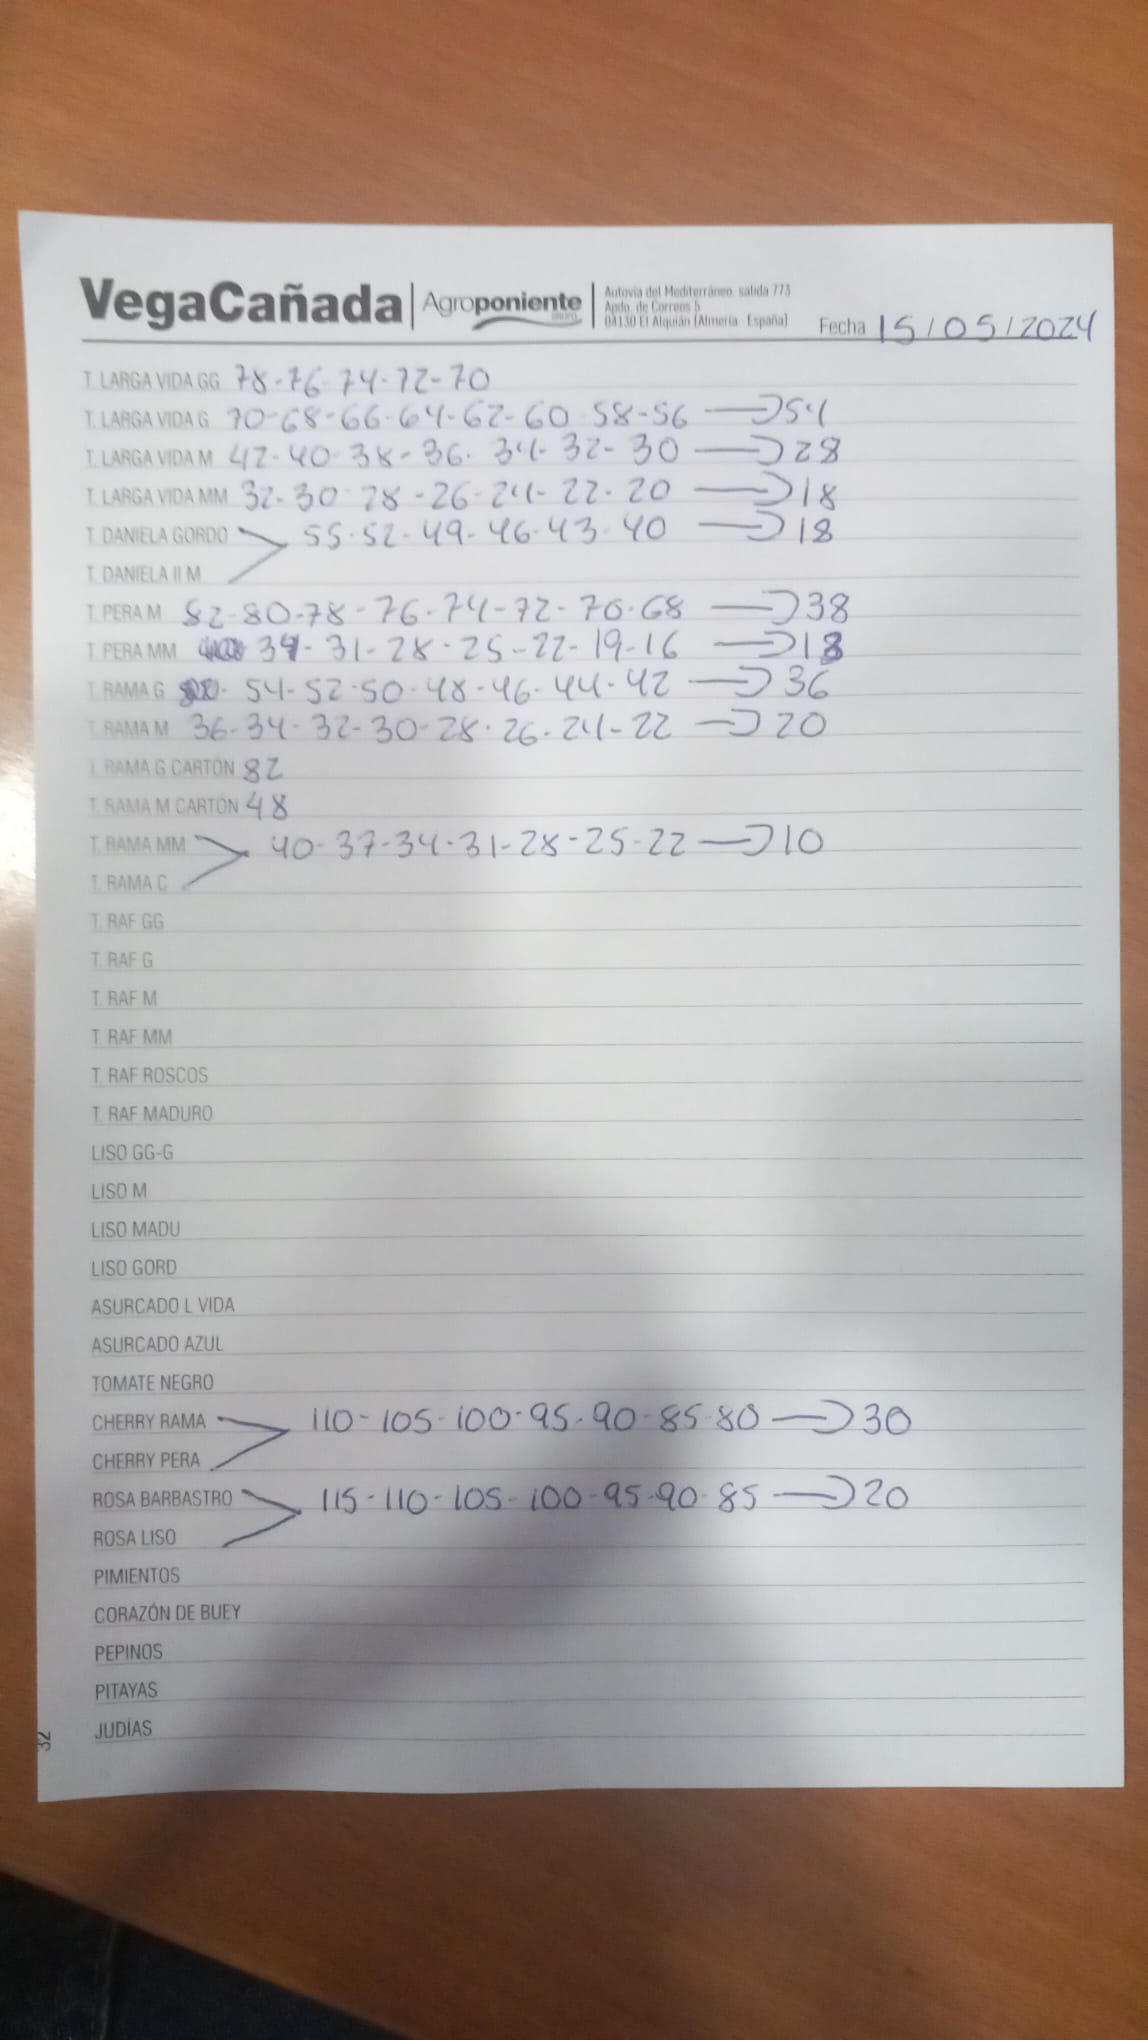 VegaCañada | Agroponiente GRUPO
Autovía del Mediterráneo, salida 773
Apdo. de Correos 5
04130 El Alquián (Almería - España)
Fecha 15/05/2024
T. LARGA VIDA GG 78-76-74-72-70
T. LARGA VIDA G 70-68-66-64-62-60-58-56 → 54
T. LARGA VIDA M 42-40-38-36-34-32-30 → 28
T. LARGA VIDA MM 32-30-28-26-24-22-20 → 18
T. DANIELA GORDO 55-52-49-46-43-40 → 18
T. DANIELA II M
T. PERA M 82-80-78-76-74-72-70-68 → 38
T. PERA MM 34-31-28-25-22-19-16 → 13
T. RAMA G 54-52-50-48-46-44-42 → 36
T. RAMA M 36-34-32-30-28-26-24-22 → 20
T. RAMA G CARTÓN 82
T. RAMA M CARTÓN 48
T. RAMA MM 40-37-34-31-28-25-22 → 10
T. RAMA C
T. RAF GG
T. RAF G
T. RAF M
T. RAF MM
T. RAF ROSCOS
T. RAF MADURO
LISO GG-G
LISO M
LISO MADU
LISO GORD
ASURCADO L VIDA
ASURCADO AZUL
TOMATE NEGRO
CHERRY RAMA 110-105-100-95-90-85-80 → 30
CHERRY PERA
ROSA BARBASTRO 115-110-105-100-95-90-85 → 20
ROSA LISO
PIMIENTOS
CORAZÓN DE BUEY
PEPINOS
PITAYAS
JUDÍAS
32